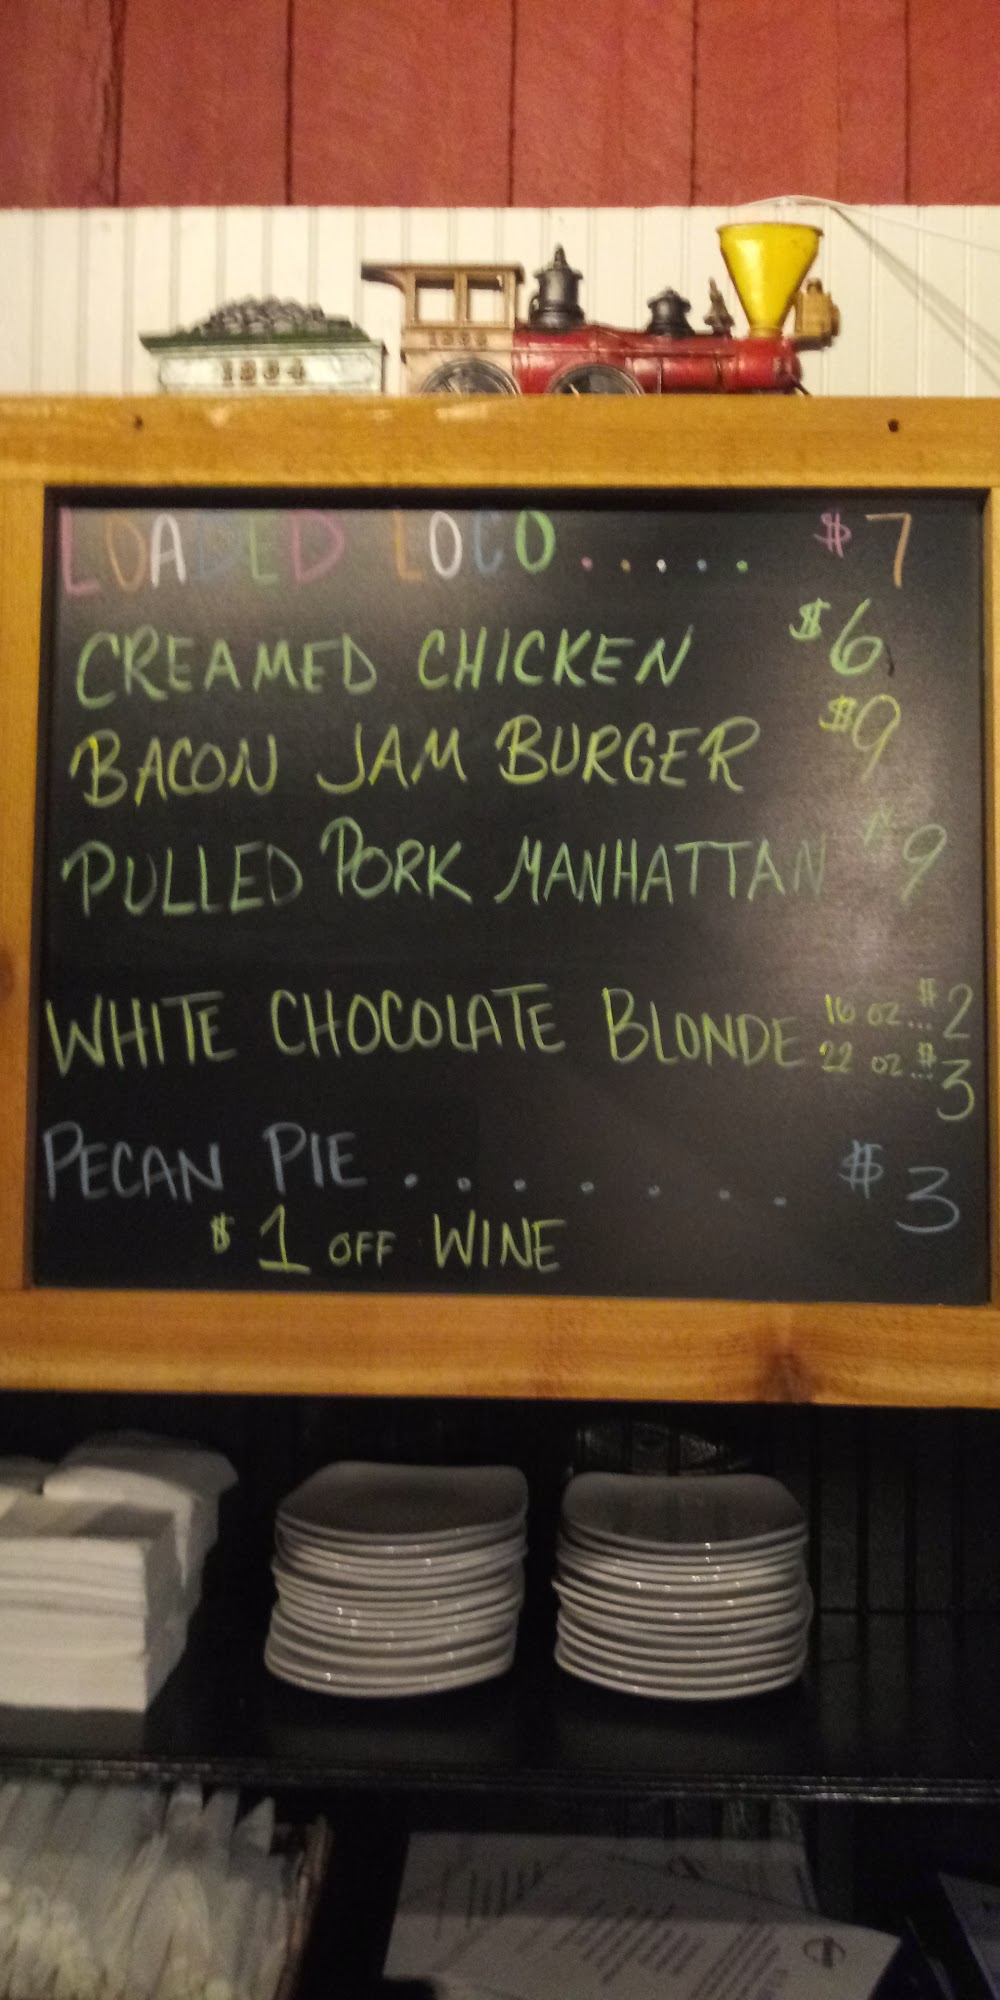 1884
LOADED LOCO ..... $7
CREAMED CHICKEN $6
BACON JAM BURGER $9
PULLED PORK MANHATTAN 9
WHITE CHOCOLATE BLONDE 16 OZ... $2
22 OZ... $3
PECAN PIE ....... $3
$1 OFF WINE